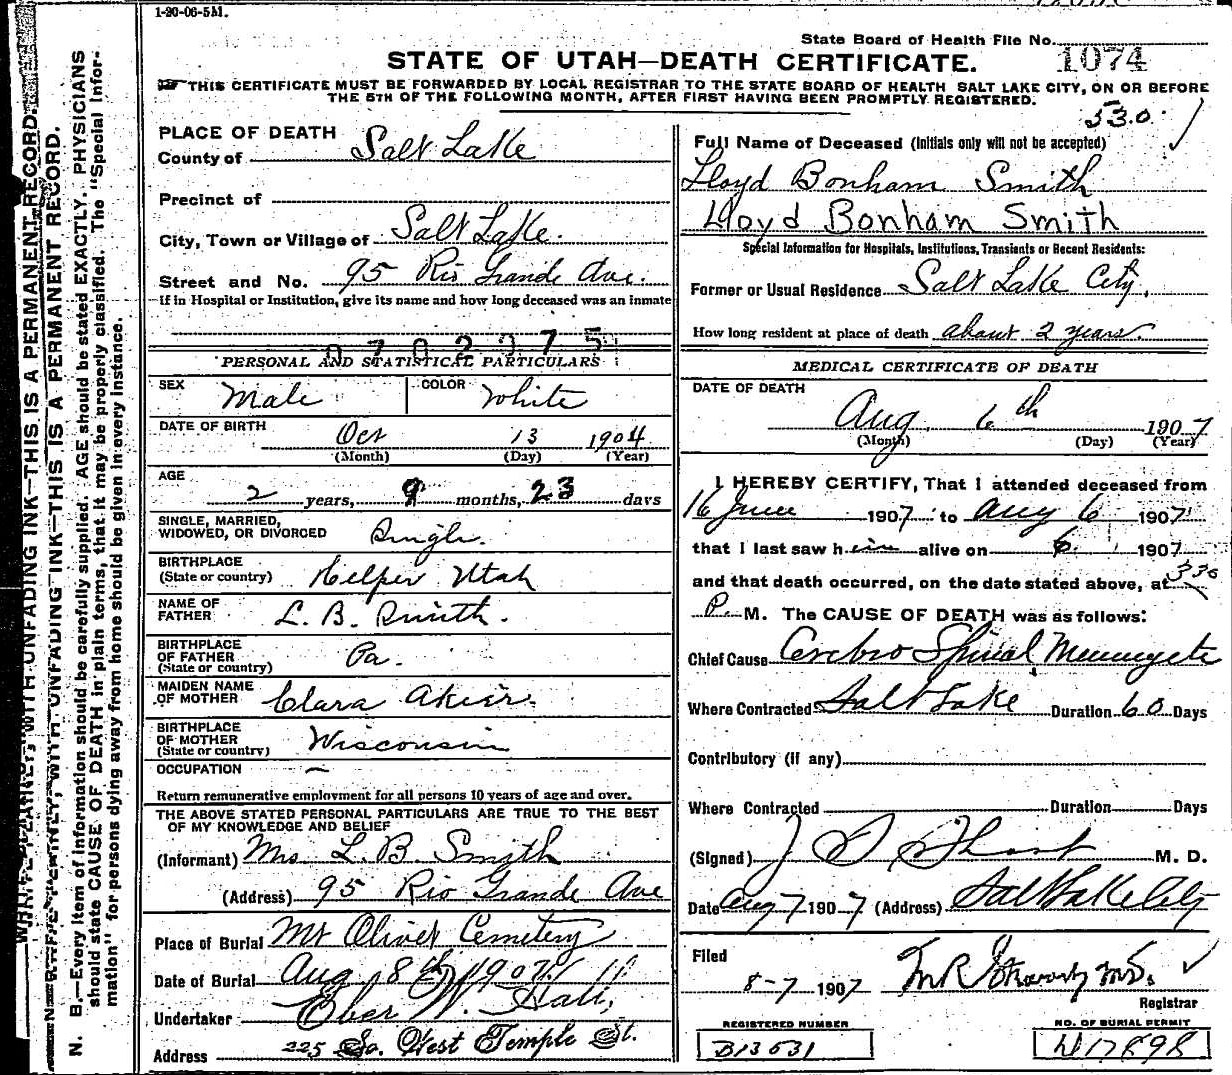 1-20-06-5M.
State Board of Health File No. 1074
STATE OF UTAH—DEATH CERTIFICATE.
THIS CERTIFICATE MUST BE FORWARDED BY LOCAL REGISTRAR TO THE STATE BOARD OF HEALTH SALT LAKE CITY, ON OR BEFORE
THE 5TH OF THE FOLLOWING MONTH, AFTER FIRST HAVING BEEN PROMPTLY REGISTERED.
WRITE PLAINLY, WITH UNFADING INK—THIS IS A PERMANENT RECORD.
N. B.—Every item of information should be carefully supplied. AGE should be stated EXACTLY. PHYSICIANS
should state CAUSE OF DEATH in plain terms, that it may be properly classified. The "Special Infor-
mation" for persons dying away from home should be given in every instance.
PLACE OF DEATH
County of Salt Lake
Precinct of
City, Town or Village of Salt Lake.
Street and No. 95 Rio Grande Ave.
If in Hospital or Institution, give its name and how long deceased was an inmate
PERSONAL AND STATISTICAL PARTICULARS
SEX Male COLOR White
DATE OF BIRTH Oct 13 1904
(Month) (Day) (Year)
AGE
2 years, 9 months, 23 days
SINGLE, MARRIED,
WIDOWED, OR DIVORCED Single.
BIRTHPLACE
(State or country) Helper Utah
NAME OF
FATHER L. B. Smith.
BIRTHPLACE
OF FATHER
(State or country) Pa.
MAIDEN NAME
OF MOTHER Clara
BIRTHPLACE
OF MOTHER
(State or country) Wisconsin
OCCUPATION —
Return remunerative employment for all persons 10 years of age and over.
THE ABOVE STATED PERSONAL PARTICULARS ARE TRUE TO THE BEST
OF MY KNOWLEDGE AND BELIEF
(Informant) Mrs L. B. Smith
(Address) 95 Rio Grande Ave
Place of Burial Mt Olivet Cemetery
Date of Burial Aug 8th 1907
Undertaker Eber W. Hall,
Address 225 So. West Temple St.
530
Full Name of Deceased (Initials only will not be accepted)
Lloyd Bonham Smith
Lloyd Bonham Smith
Special Information for Hospitals, Institutions, Transients or Recent Residents:
Former or Usual Residence Salt Lake City,
How long resident at place of death about 2 years.
MEDICAL CERTIFICATE OF DEATH
DATE OF DEATH
Aug. 6th 1907
(Month) (Day) (Year)
I HEREBY CERTIFY, That I attended deceased from
16 June 1907 to Aug 6 1907
that I last saw him alive on 6 1907
and that death occurred, on the date stated above, at 330
P. M. The CAUSE OF DEATH was as follows:
Chief Cause Cerebro Spinal
Where Contracted Salt Lake Duration 60 Days
Contributory (if any)
Where Contracted Duration Days
(Signed) M. D.
Date Aug 7 1907 (Address) Salt Lake City
Filed
8-7 1907
Registrar
REGISTERED NUMBER
B13631
NO. OF BURIAL PERMIT